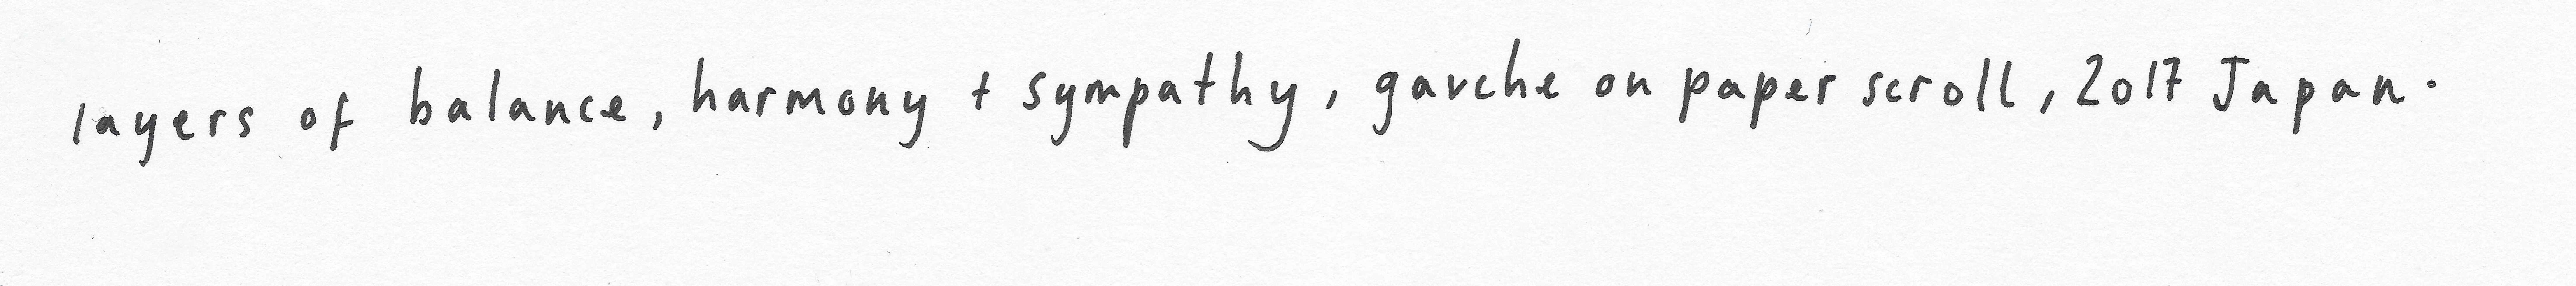 layers of balance, harmony + sympathy, gauche on paper scroll, 2017 Japan.